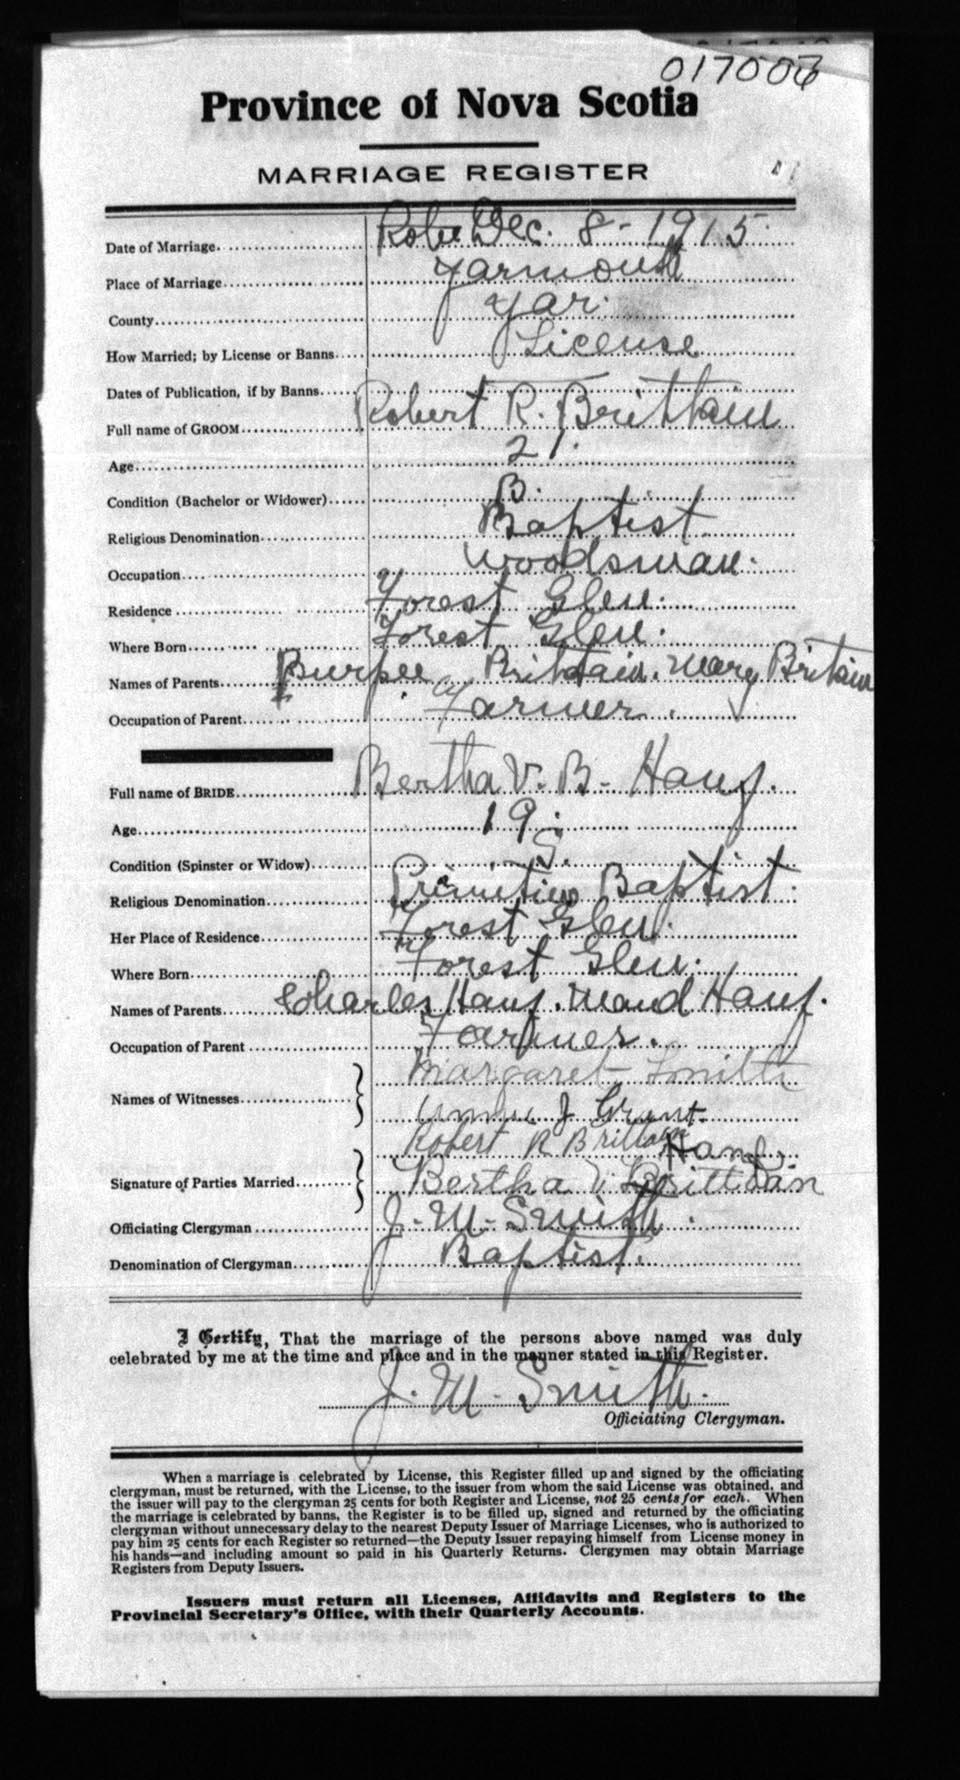 017006
Province of Nova Scotia
MARRIAGE REGISTER
Date of Marriage Dec. 8 - 1915
Place of Marriage Yarmouth
County Yar.
How Married; by License or Banns License
Dates of Publication, if by Banns
Full name of GROOM Robert R. Brittain
Age 21.
Condition (Bachelor or Widower) B.
Religious Denomination Baptist
Occupation Woodsman.
Residence Forest Glen.
Where Born Forest Glen.
Names of Parents Burpee Brittain. Mary Britain
Occupation of Parent Farmer.
Full name of BRIDE Bertha V. B. Hauf.
Age 19.
Condition (Spinster or Widow) S.
Religious Denomination Primitive Baptist.
Her Place of Residence Forest Glen.
Where Born Forest Glen.
Names of Parents Charles Hauf. Maud Hauf.
Occupation of Parent Farmer.
Margaret Smith
Names of Witnesses
J Grant
Robert R Brittain
Signature of Parties Married Bertha V Brittain
Officiating Clergyman J. M. Smith.
Denomination of Clergyman Baptist.
I Certify, That the marriage of the persons above named was duly
celebrated by me at the time and place and in the manner stated in this Register.
J. M. Smith.
Officiating Clergyman.
When a marriage is celebrated by License, this Register filled up and signed by the officiating
clergyman, must be returned, with the License, to the issuer from whom the said License was obtained, and
the issuer will pay to the clergyman 25 cents for both Register and License, not 25 cents for each. When
the marriage is celebrated by banns, the Register is to be filled up, signed and returned by the officiating
clergyman without unnecessary delay to the nearest Deputy Issuer of Marriage Licenses, who is authorized to
pay him 25 cents for each Register so returned—the Deputy Issuer repaying himself from License money in
his hands—and including amount so paid in his Quarterly Returns. Clergymen may obtain Marriage
Registers from Deputy Issuers.
Issuers must return all Licenses, Affidavits and Registers to the
Provincial Secretary's Office, with their Quarterly Accounts.